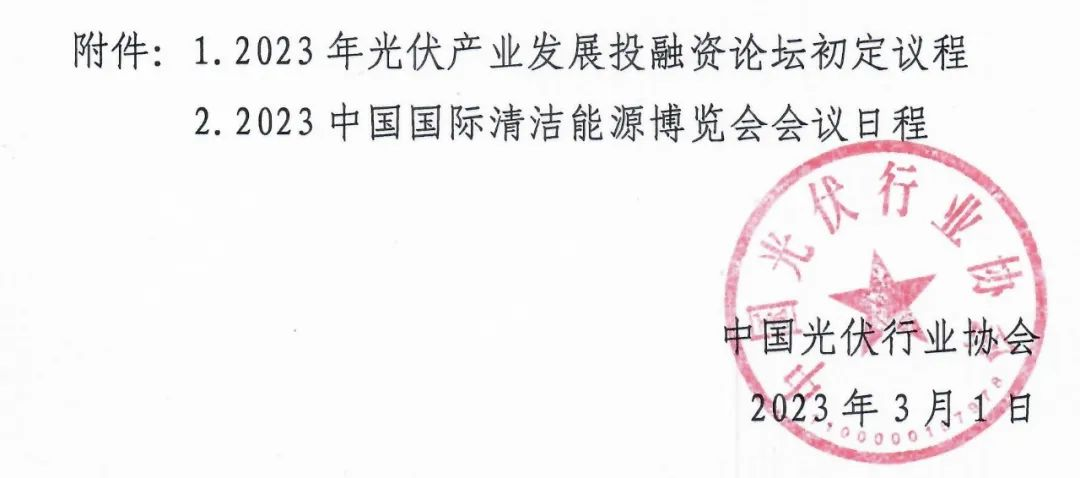 附件：1.2023年光伏产业发展投融资论坛初定议程
2.2023中国国际清洁能源博览会会议日程
中国光伏行业协会
中国光伏行业协会
2023年3月1日